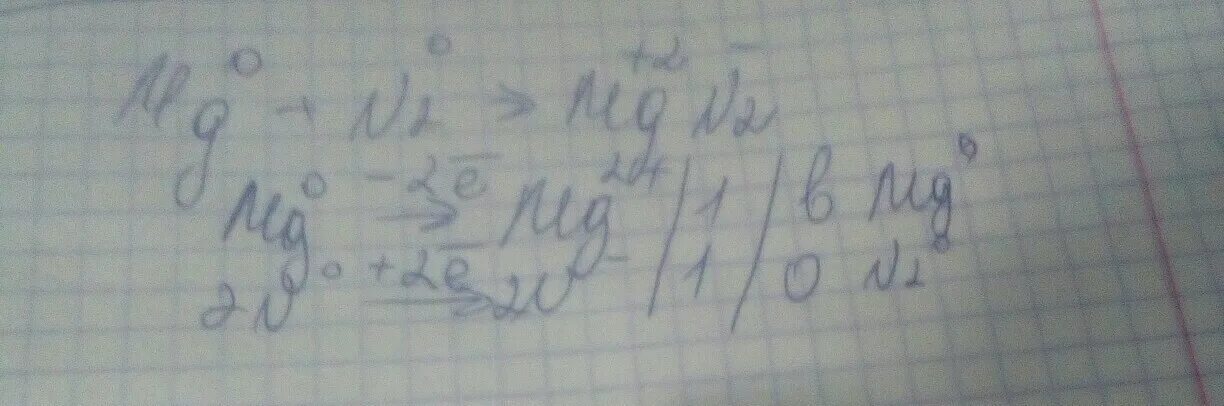 Mg⁰ + N₂⁰ → Mg⁺²N₂⁻
Mg⁰ −2e̅ → Mg²⁺ / 1 / в Mg⁰
2N⁰ +2e̅ → 2N⁻ / 1 / о N₂⁰